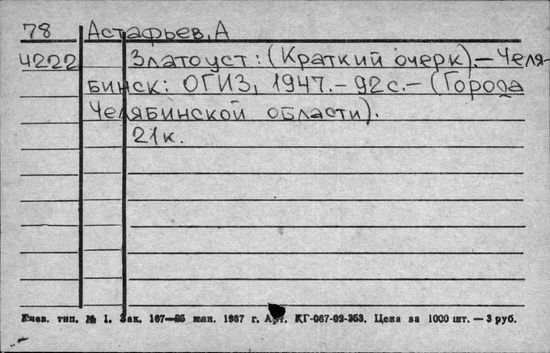 78 Астафьев, А
4222 Златоуст: (Краткий очерк).-Челя-
бинск: ОГИЗ, 1947.-92с.-(Города
Челябинской области).
21к.
Киев. тип. № 1. Зак. 107—85 шап. 1987 г. Арт. КГ-067-02-253. Цена за 1000 шт. — 3 руб.